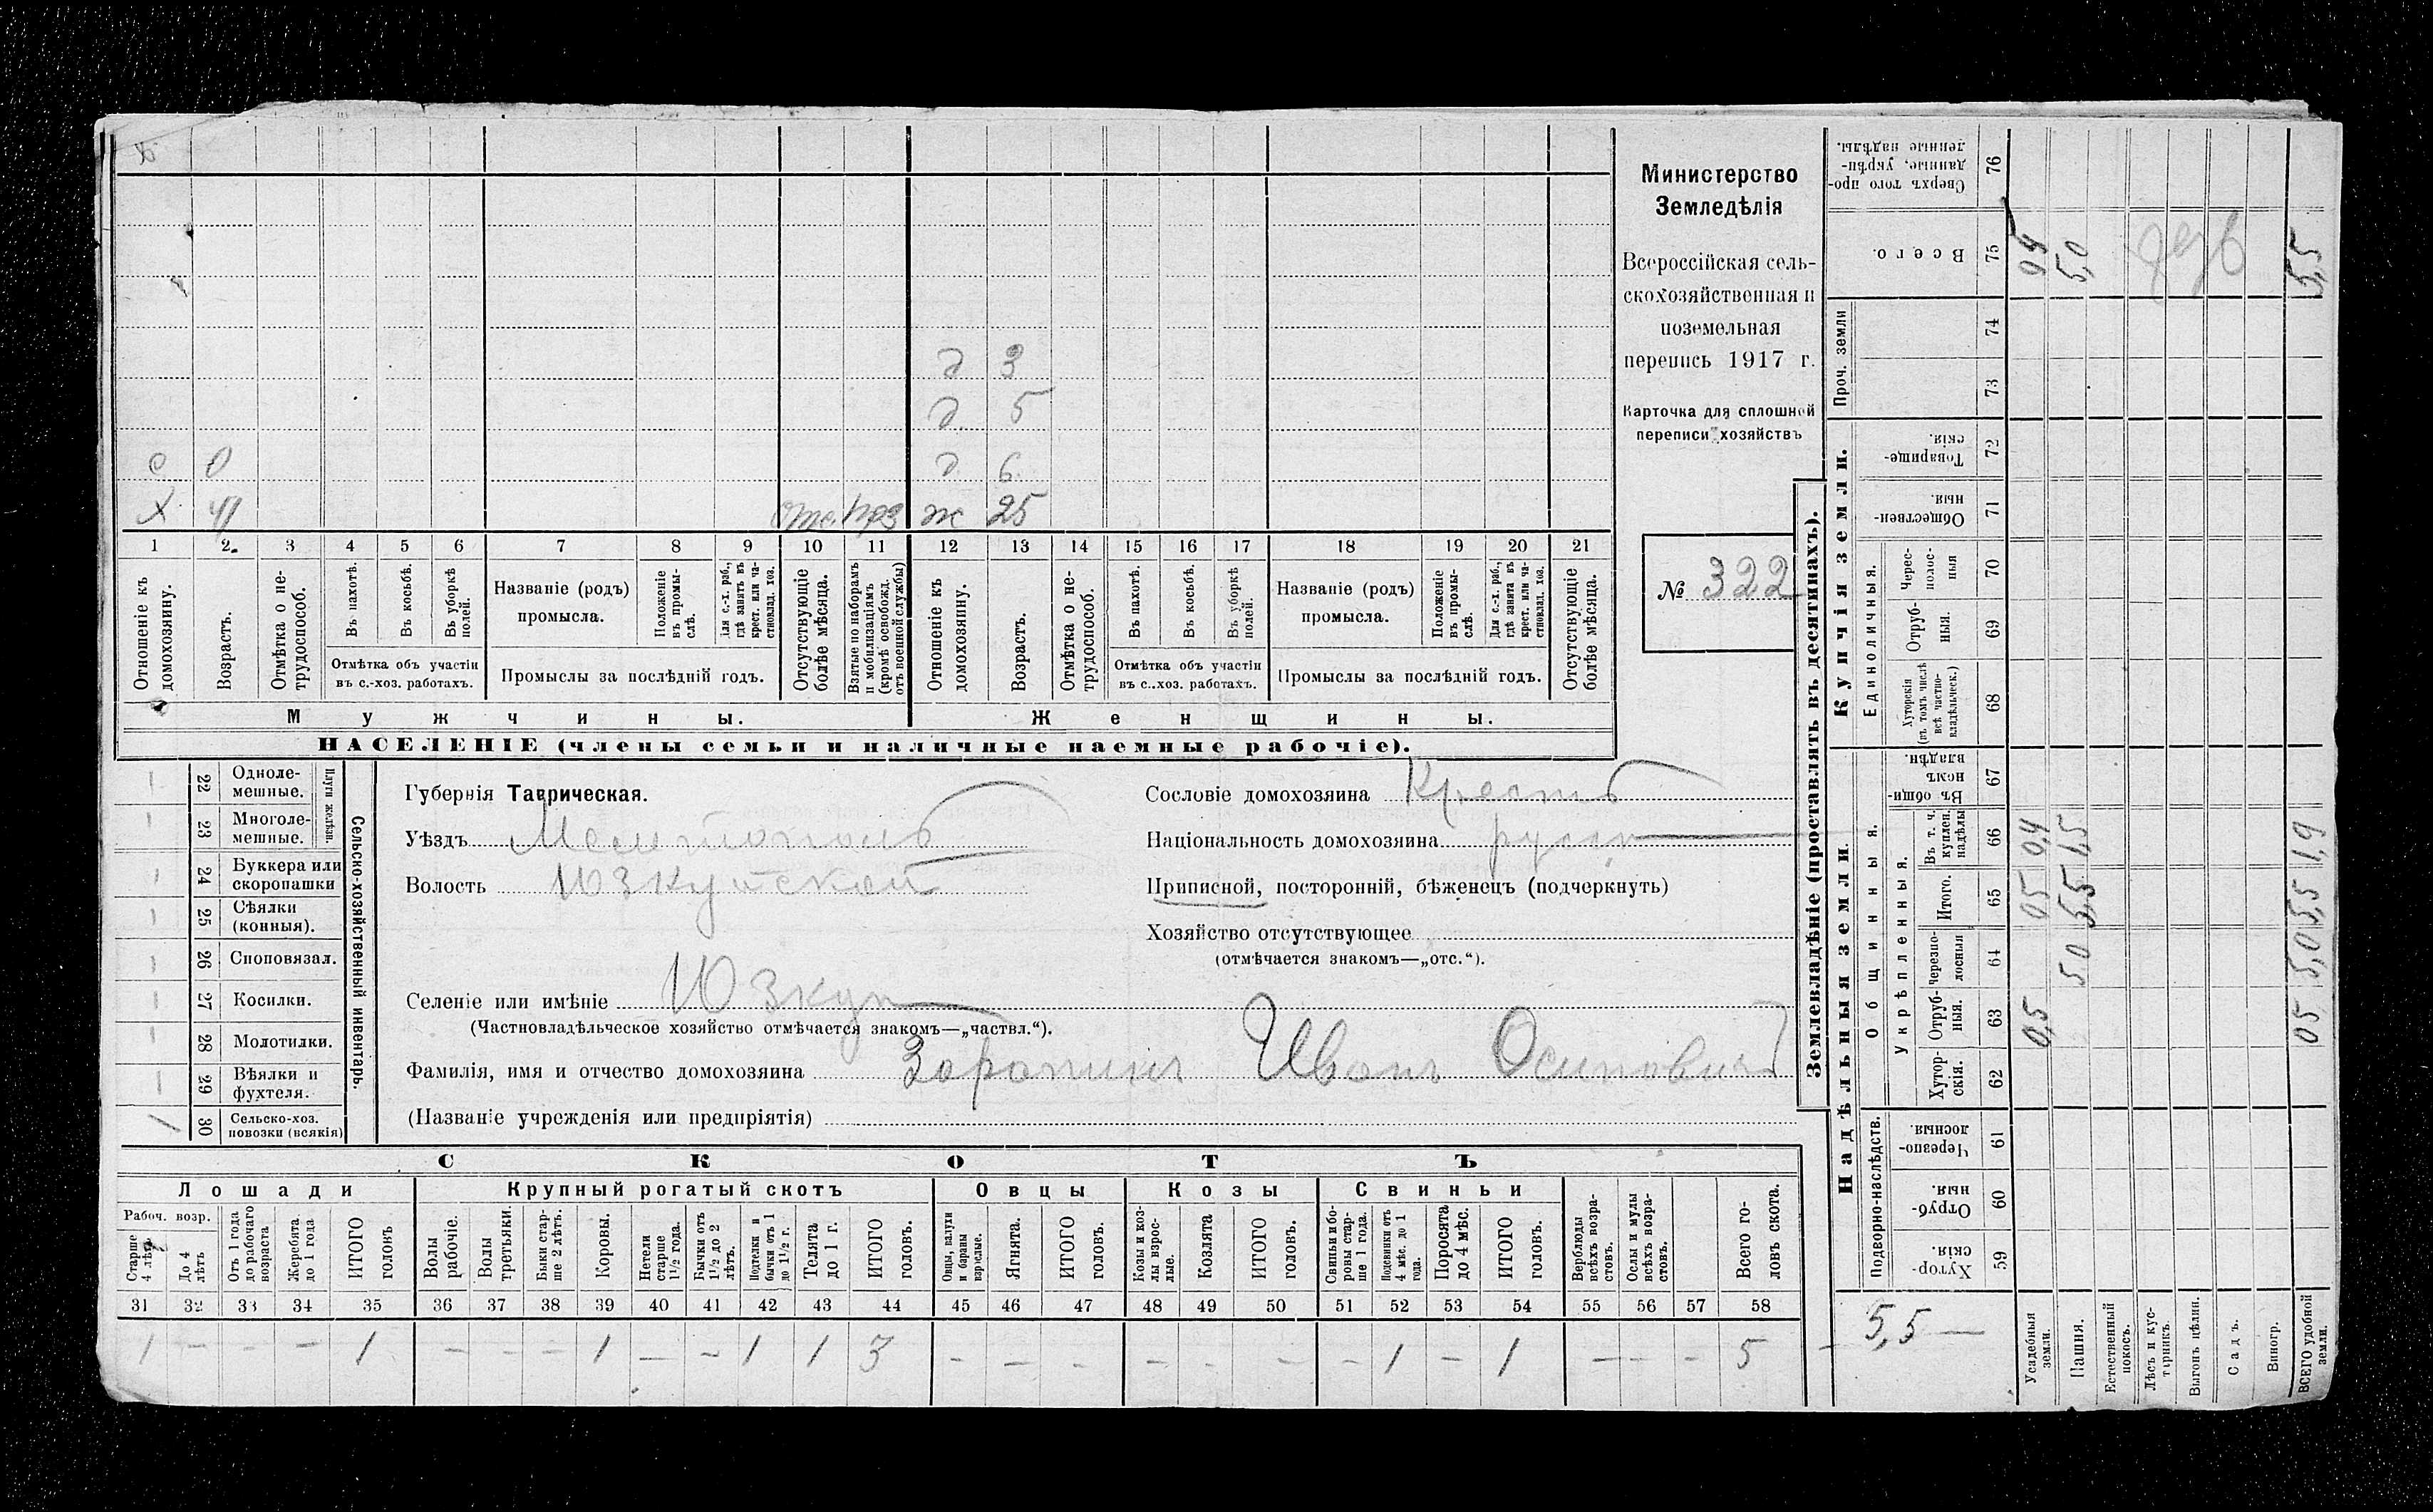 д 3
д. 5
с 0 д 6.
Х 41 отс. ж 25
1 2. 3 4 5 6 7 8 9 10 11 12 13 14 15 16 17 18 19 20 21
Отношеніе къ домохозяину.
Возрастъ.
Отмѣтка о не-
трудоспособ.
Въ пахотѣ.
Въ косьбѣ.
Въ уборкѣ полей.
Отмѣтка объ участіи
въ с.-хоз. работахъ.
Названіе (родъ)
промысла.
Положеніе въ промы-
слѣ.
Для с.-х. раб.,
гдѣ занятъ въ
крест. или ча-
стновлад. хоз.
Промыслы за послѣдній годъ.
Отсутствующіе
болѣе мѣсяца.
Взятые по наборамъ
и мобилизаціямъ
(кромѣ освобожд.
отъ военной службы)
Отношеніе къ
домохозяину.
Возрастъ.
Отмѣтка о не-
трудоспособ.
Въ пахотѣ.
Въ косьбѣ.
Въ уборкѣ
полей.
Отмѣтка объ участіи
въ с.-хоз. работахъ.
Названіе (родъ)
промысла.
Положеніе
въ промы-
слѣ.
Для с.-х. раб.,
гдѣ занятъ въ
крест. или ча-
стновлад. хоз.
Промыслы за послѣдній годъ.
Отсутствующіе
болѣе мѣсяца.
Мужчины.
Женщины.
НАСЕЛЕНІЕ (члены семьи и наличные наемные рабочіе).
Министерство
Земледѣлія
Всероссійская сель-
скохозяйственная и
поземельная
перепись 1917 г.
Карточка для сплошной
переписи хозяйствъ
№ 322
Сельско-хозяйственный инвентарь.
Плуги желѣзн.
22 Одноле-
мешные.
23 Многоле-
мешные.
24 Буккера или
скоропашки
25 Сѣялки
(конныя).
26 Сноповязал.
27 Косилки.
28 Молотилки.
29 Вѣялки и
фухтеля.
1 30 Сельско-хоз.
повозки (всякія)
Губернія Таврическая.
Уѣздъ Мелитополь
Волость Юзкуйской
Селеніе или имѣніе Юзкуи
(Частновладѣльческое хозяйство отмѣчается знакомъ—„частвл.“).
Фамилія, имя и отчество домохозяина Иванъ Осипович
(Названіе учрежденія или предпріятія)
Сословіе домохозяина Крест
Національность домохозяина русск
Приписной, посторонній, бѣженецъ (подчеркнуть)
Хозяйство отсутствующее
(отмѣчается знакомъ—„отс.“).
СКОТЪ
Лошади
Крупный рогатый скотъ
Овцы
Козы
Свиньи
Рабоч. возр.
Старше
4 лѣтъ
До 4
лѣтъ
Отъ 1 года
до рабочаго
возраста
Жеребята
до 1 года
ИТОГО
головъ
Волы
рабочіе.
Волы
третьяки.
Быки стар-
ше 2 лѣтъ.
Коровы.
Нетели
старше
1½ года.
Бычки отъ
1½ до 2
лѣтъ.
Подтелки и
бычки отъ 1
до 1½ г.
Телята
до 1 г.
ИТОГО
головъ.
Овцы, валухи
и бараны
взрослые.
Ягнята.
ИТОГО
головъ.
Козы и коз-
лы взрос-
лые.
Козлята
ИТОГО
головъ.
Свиньи и бо-
ровы стар-
ше 1 года.
Подсвинки отъ
4 мѣс. до 1
года.
Поросята
до 4 мѣс.
ИТОГО
головъ.
Верблюды
всѣхъ возра-
стовъ.
Ослы и мулы
всѣхъ возра-
стовъ.
Всего го-
ловъ скота.
31 32 33 34 35 36 37 38 39 40 41 42 43 44 45 46 47 48 49 50 51 52 53 54 55 56 57 58
1 — - — 1 — — — 1 — — 1 1 3 - — - — - — — 1 — 1 — — - 5
Землевладѣніе (проставлять въ десятинахъ).
Надѣльныя земли
Купчія земли.
Проч. земли
Подворно-наслѣдств.
Общинныя.
Укрѣпленныя.
Единоличныя.
Хутор-
скія. 59
Отруб-
ныя. 60
Черезпо-
лосныя. 61
Хутор-
скія. 62
Отруб-
ныя. 63
Черезпо-
лосныя 64
Итого. 65
Въ т. ч.
куплен.
надѣлы 66
Въ общи-
номъ
владѣн. 67
Хуторскія
(въ томъ числѣ
всѣ частно-
владѣльческ.) 68
Отруб-
ныя 69
Черес-
полос-
ныя 70
Обществен-
ныя. 71
Товарище-
скія. 72
73
74
Всего. 75
Сверхъ того про-
данные, укрѣп-
ленные надѣлы. 76
5,5 —
Усадебныя
земли. 0,5 05 0,4 05
Пашня. 50 5,5 1,5 5,0
Естественный
покосъ.
Лѣсъ и кус-
тарникъ.
Выгонъ цѣлин.
Садъ.
Виногр.
ВСЕГО удобной
земли. 05 5,0 5,5 1,9 5,5